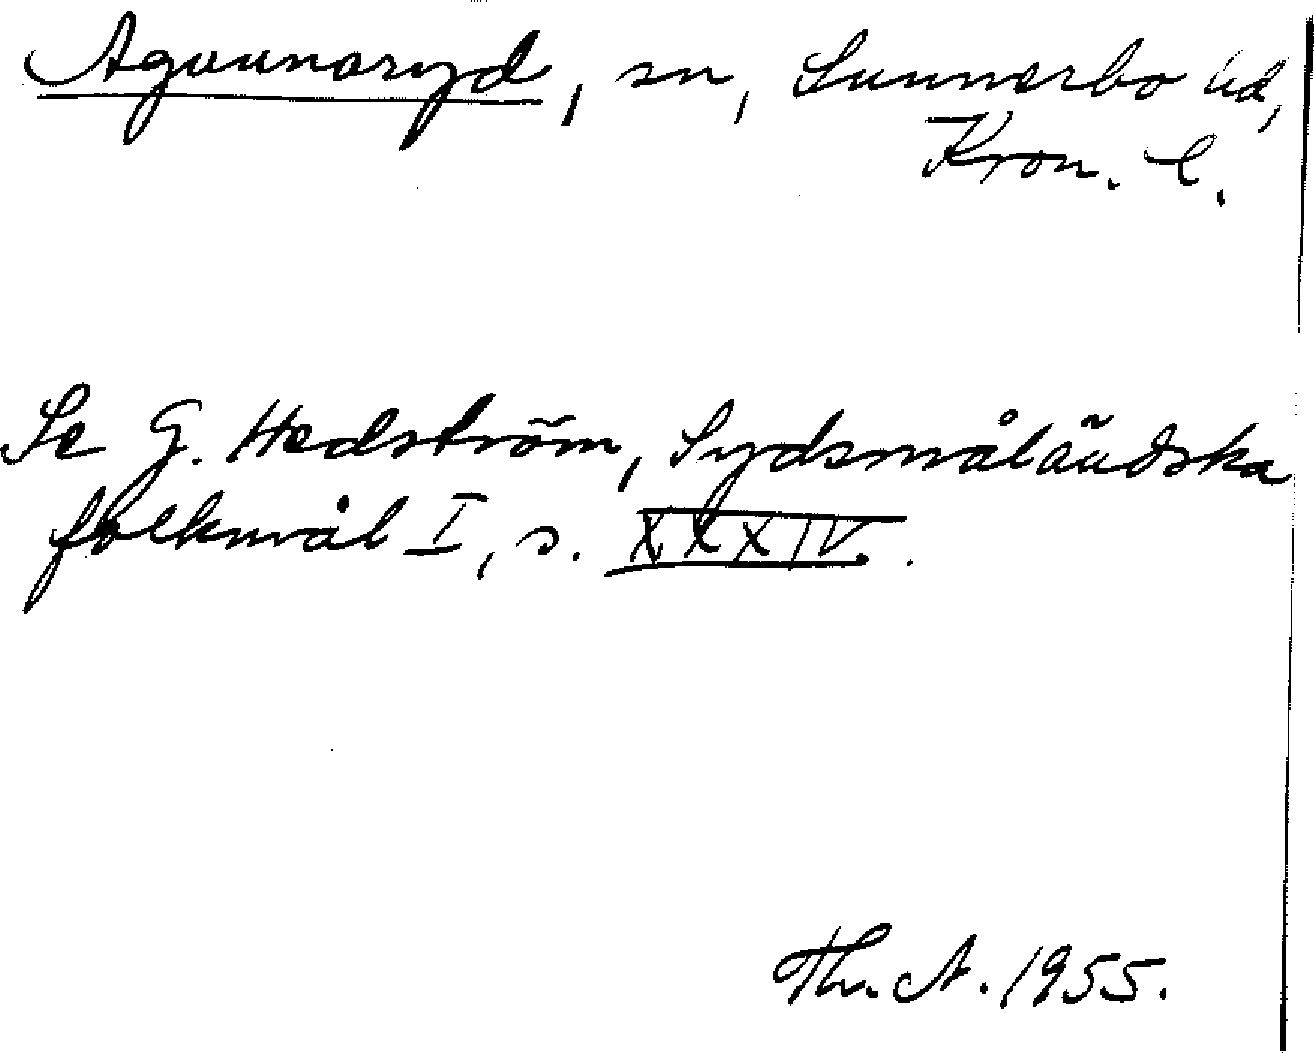 Agunnaryd, sn, Sunnerbo hd,
Kron. l.
Se G. Hedström, Sydsmåländska
folkmål I, s. XXXIV.
Th. A. 1955.